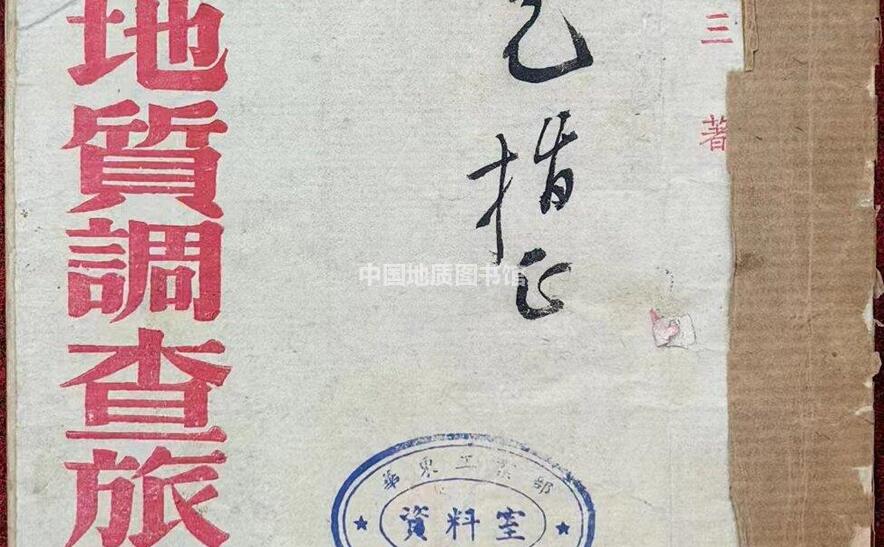 三著
乞指正
地質調查旅
中国地质图书馆
華東工業部
資料室